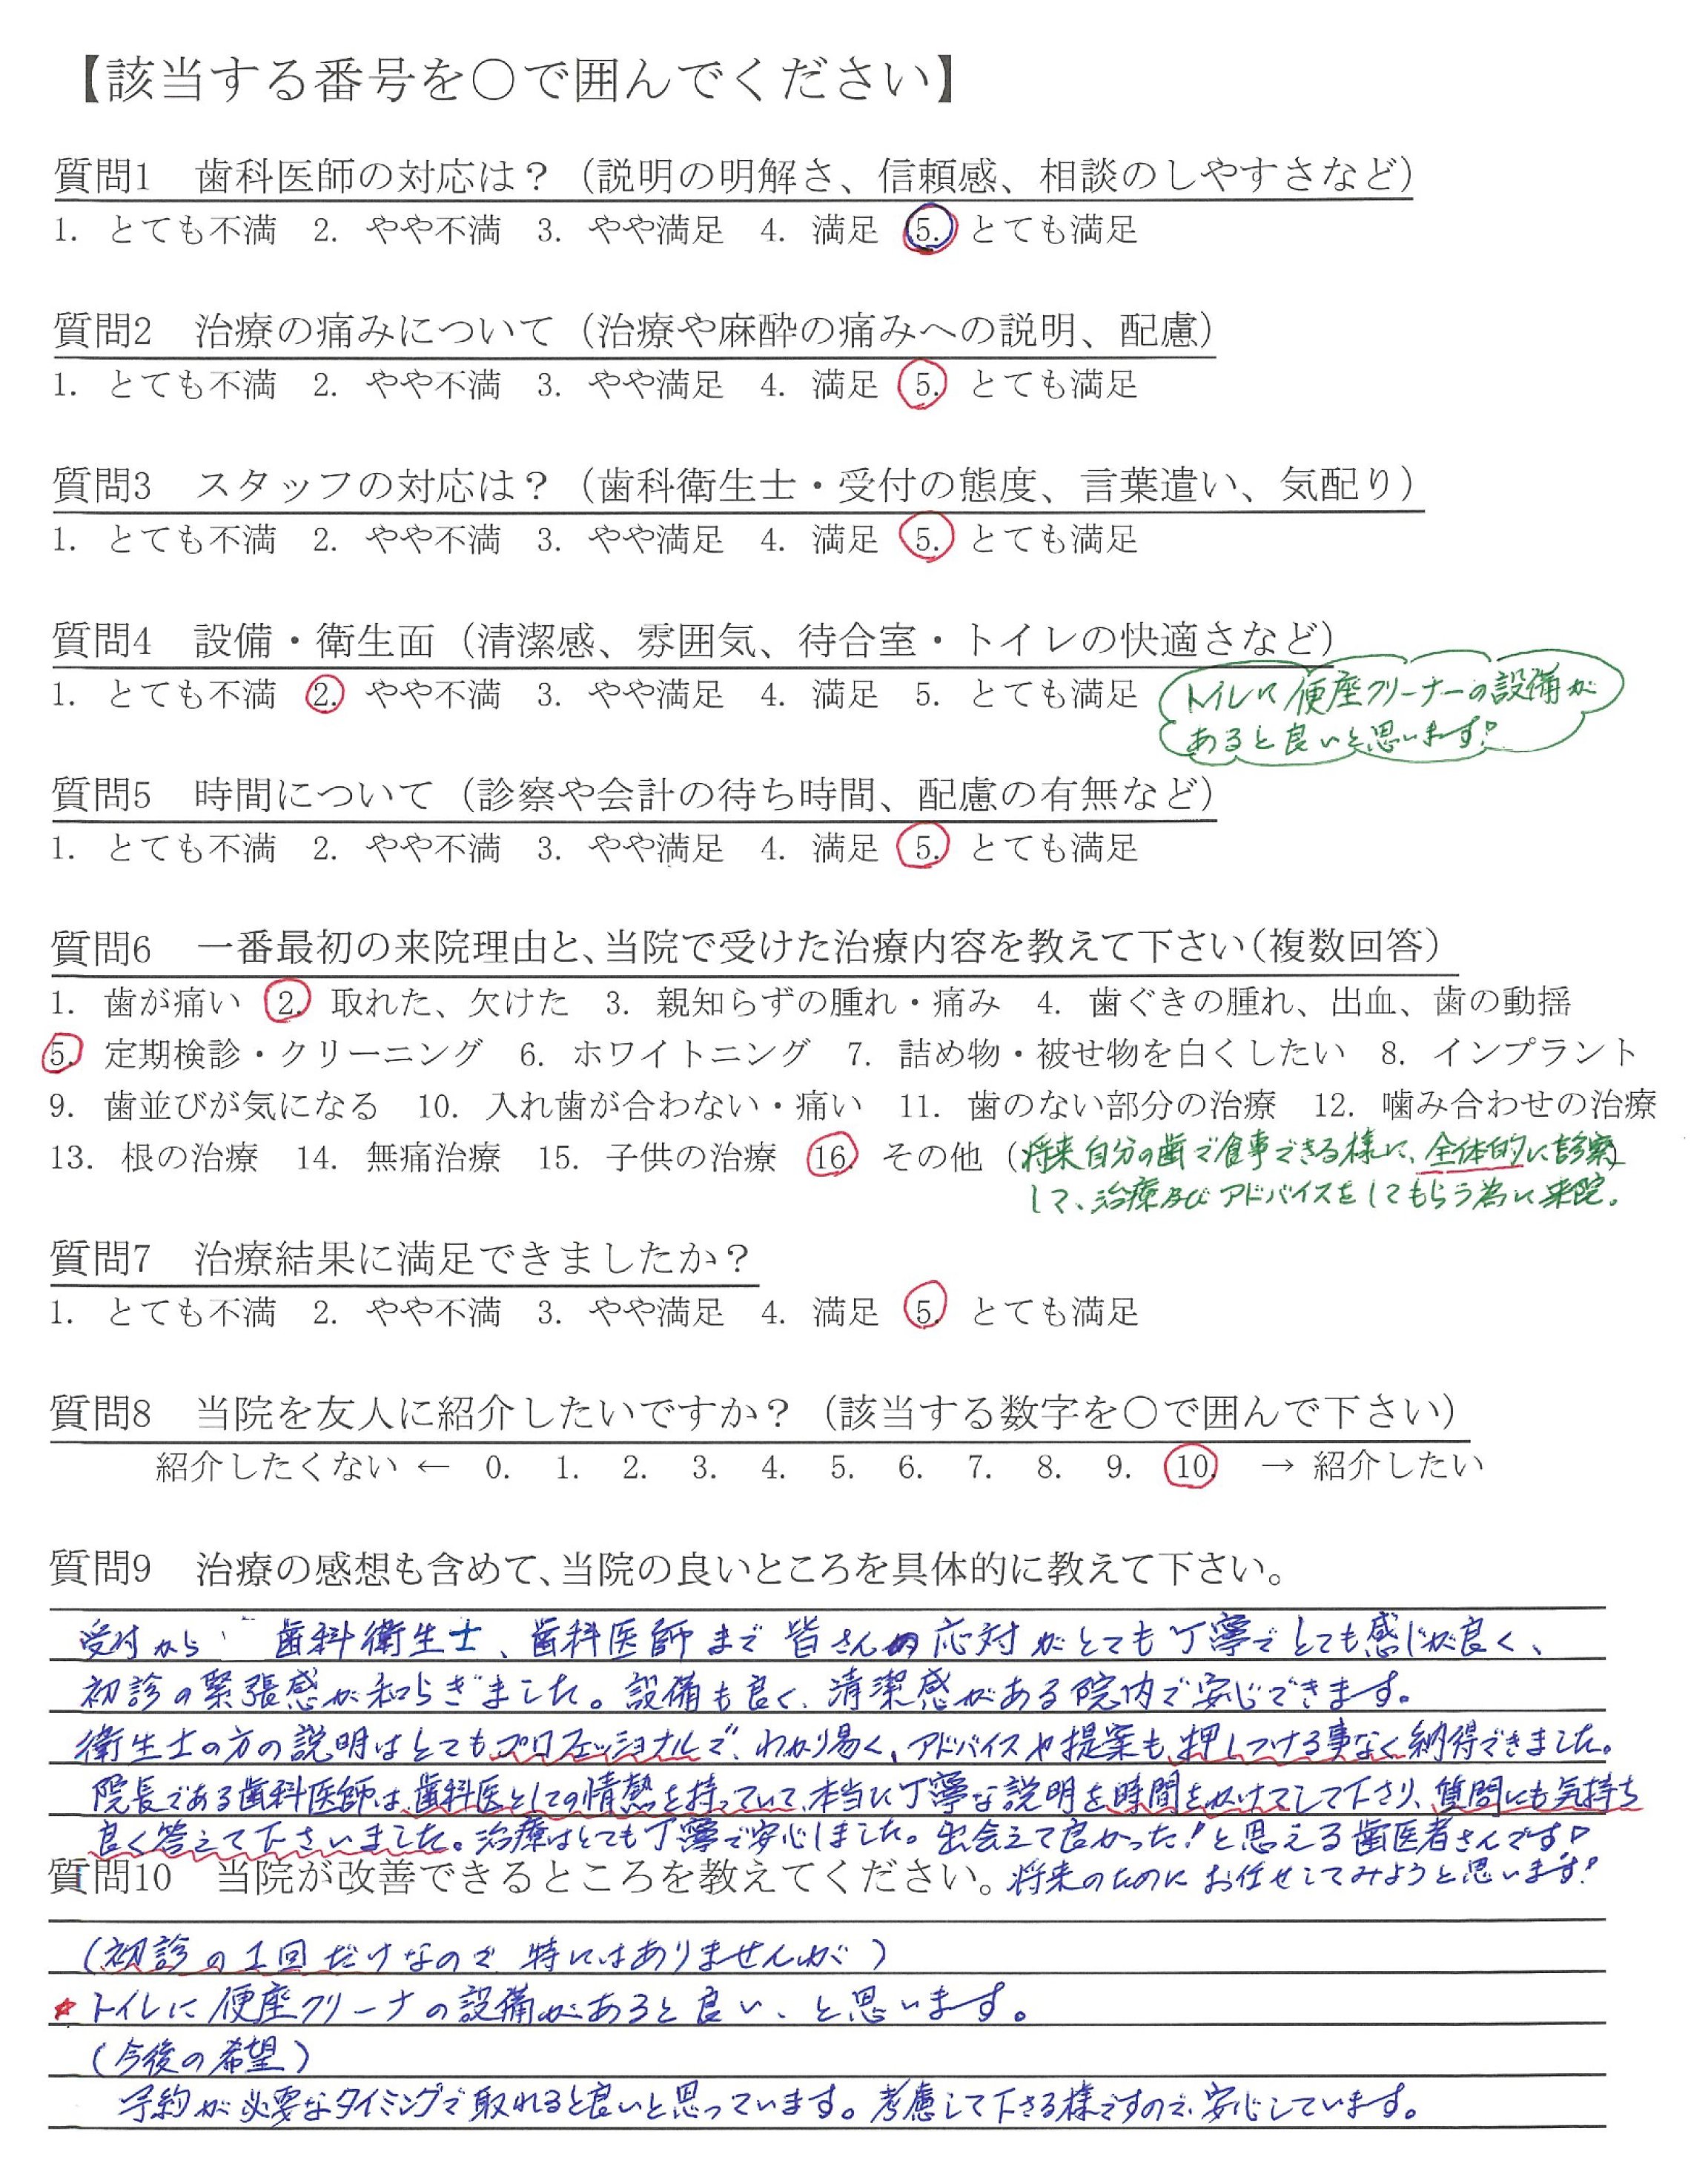 【該当する番号を○で囲んでください】
質問1　歯科医師の対応は？（説明の明解さ、信頼感、相談のしやすさなど）
1. とても不満　2. やや不満　3. やや満足　4. 満足　5. とても満足
質問2　治療の痛みについて（治療や麻酔の痛みへの説明、配慮）
1. とても不満　2. やや不満　3. やや満足　4. 満足　5. とても満足
質問3　スタッフの対応は？（歯科衛生士・受付の態度、言葉遣い、気配り）
1. とても不満　2. やや不満　3. やや満足　4. 満足　5. とても満足
質問4　設備・衛生面（清潔感、雰囲気、待合室・トイレの快適さなど）
1. とても不満　2. やや不満　3. やや満足　4. 満足　5. とても満足
トイレに便座クリーナーの設備が
あると良いと思います！
質問5　時間について（診察や会計の待ち時間、配慮の有無など）
1. とても不満　2. やや不満　3. やや満足　4. 満足　5. とても満足
質問6　一番最初の来院理由と、当院で受けた治療内容を教えて下さい（複数回答）
1. 歯が痛い　2. 取れた、欠けた　3. 親知らずの腫れ・痛み　4. 歯ぐきの腫れ、出血、歯の動揺
5. 定期検診・クリーニング　6. ホワイトニング　7. 詰め物・被せ物を白くしたい　8. インプラント
9. 歯並びが気になる　10. 入れ歯が合わない・痛い　11. 歯のない部分の治療　12. 噛み合わせの治療
13. 根の治療　14. 無痛治療　15. 子供の治療　16. その他（将来自分の歯で食事できる様に、全体的に診察）
して、治療及びアドバイスをしてもらう為に来院。
質問7　治療結果に満足できましたか？
1. とても不満　2. やや不満　3. やや満足　4. 満足　5. とても満足
質問8　当院を友人に紹介したいですか？（該当する数字を○で囲んで下さい）
紹介したくない ← 0. 1. 2. 3. 4. 5. 6. 7. 8. 9. 10. → 紹介したい
質問9　治療の感想も含めて、当院の良いところを具体的に教えて下さい。
受付から 歯科衛生士、歯科医師まで皆さんの応対がとても丁寧でとても感じが良く、
初診の緊張感が和らぎました。設備も良く、清潔感がある院内で安心できます。
衛生士の方の説明はとてもプロフェッショナルで、わかり易く、アドバイスや提案も押しつける事なく納得できました。
院長である歯科医師は、歯科医としての情熱を持っていて、本当に丁寧な説明を時間をかけてして下さり、質問にも気持ち
良く答えて下さいました。治療はとても丁寧で安心しました。出会えて良かった！と思える歯医者さんです！
質問10　当院が改善できるところを教えてください。将来のためにお任せしてみようと思います！
（初診の1回だけなので 特にはありませんが）
☆トイレに便座クリーナの設備があると良い、と思います。
（今後の希望）
予約が必要なタイミングで取れると良いと思っています。考慮して下さる様ですので、安心しています。